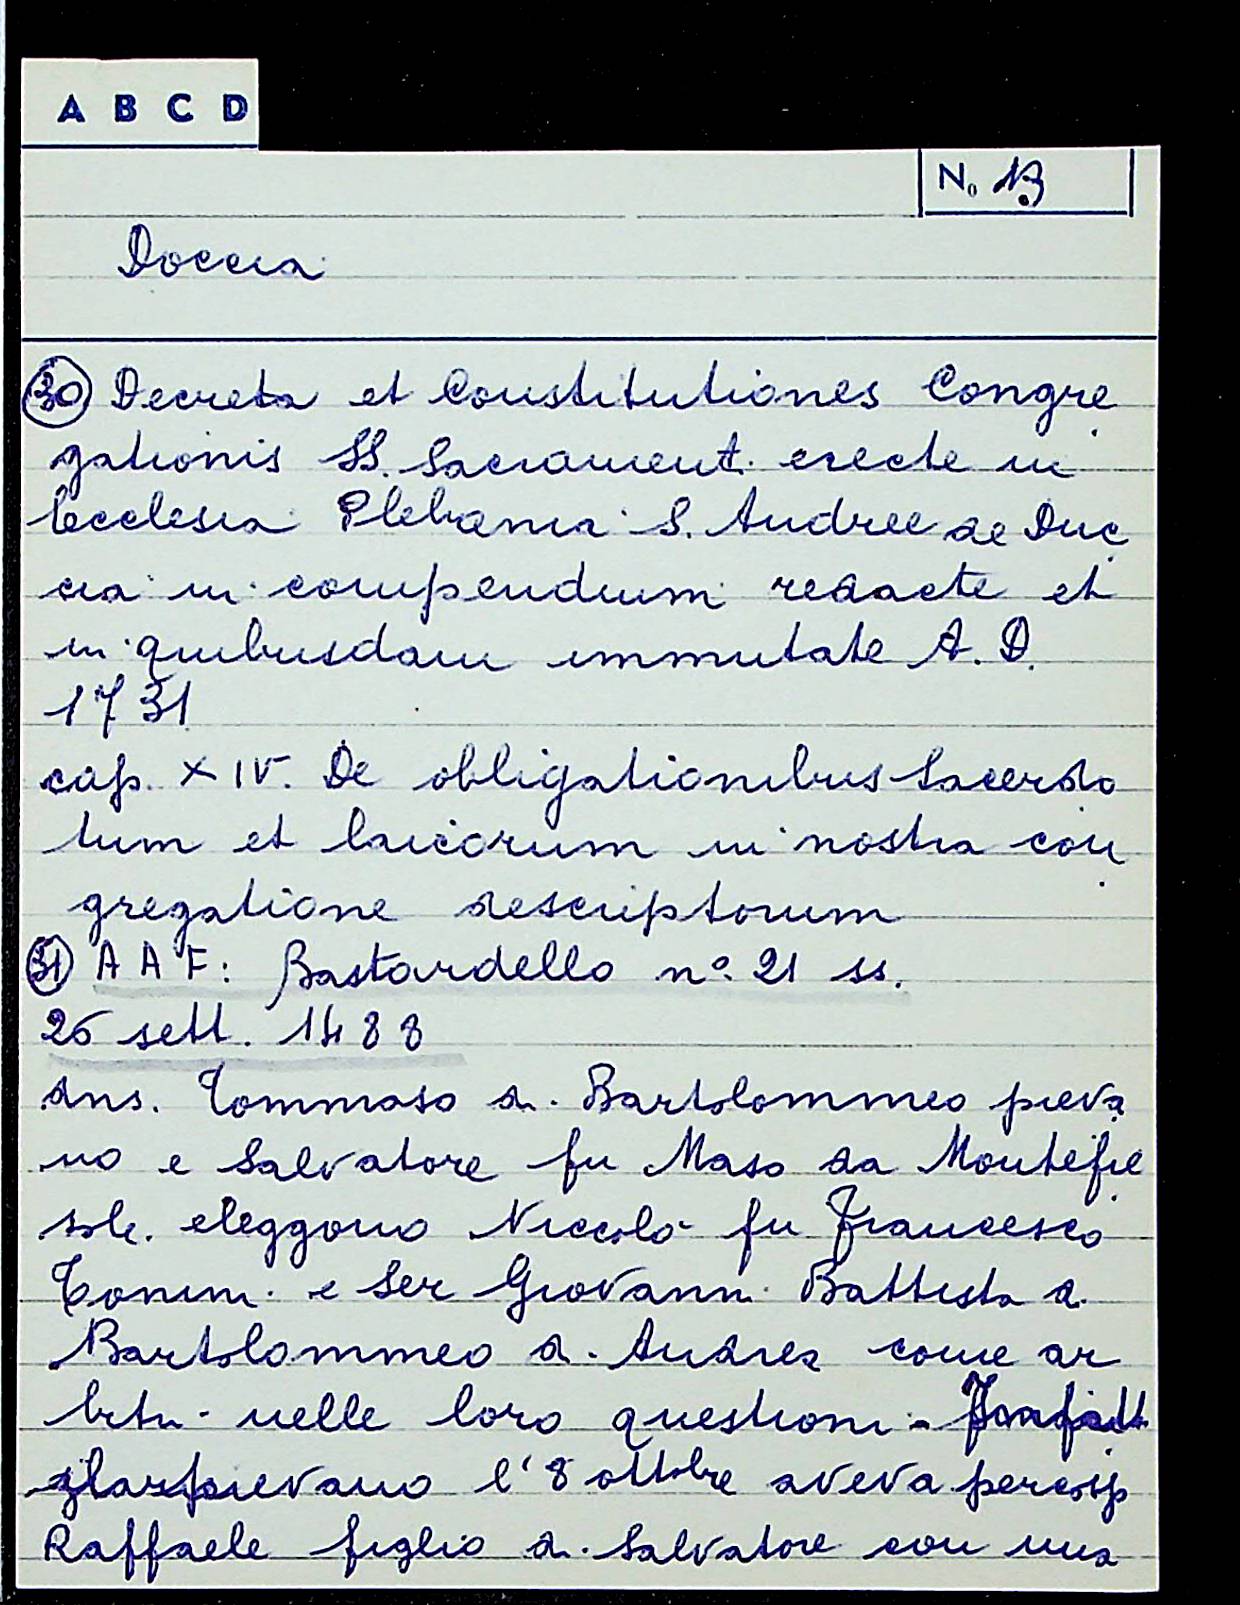 A B C D
No 13
Doccia
30 Decreta et Constitutiones Congre
gationis SS. Sacrament. erecte in
Ecclesia Plebania S. Andree de Duc
cia in compendium redacte et
in quibusdam immutate A. D.
1731
cap. XIV. De obligationibus Sacerdo
tum et laicorum in nostra con
gregatione descriptorum
31 A A F: Bastardello nº. 21 ss.
26 sett. 1488
dns. Tommaso di Bartolommeo pieva
no e Salvatore fu Maso da Montefie
sole. eleggono Niccolò fu Francesco
Tonim. e Ser Giovanni Battista di
Bartolommeo di Andrea come ar
bitri nelle loro questioni -
pievano l'8 ottobre aveva
Raffaele figlio di Salvatore con una